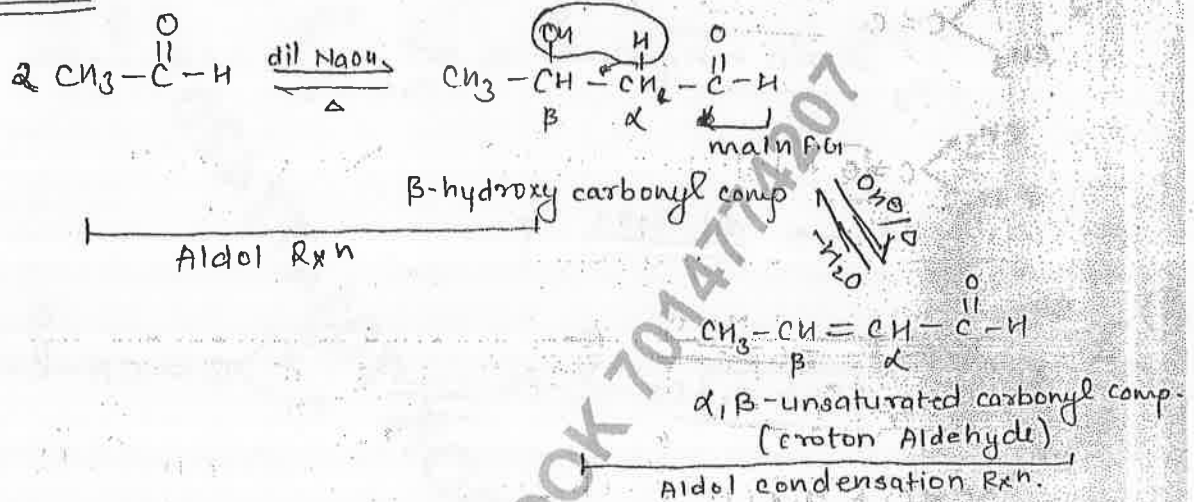 2 CH3-C(=O)-H ⇌ dil NaOH, Δ CH3-CH(OH)-CH2(H)-C(=O)-H
β α
main F.G
β-hydroxy carbonyl comp
Aldol Rxn
OH⊖/Δ
-H2O
CH3-CH=CH-C(=O)-H
β α
α,β-unsaturated carbonyl comp.
(croton Aldehyde)
Aldol condensation Rxn.
OK 7014774207